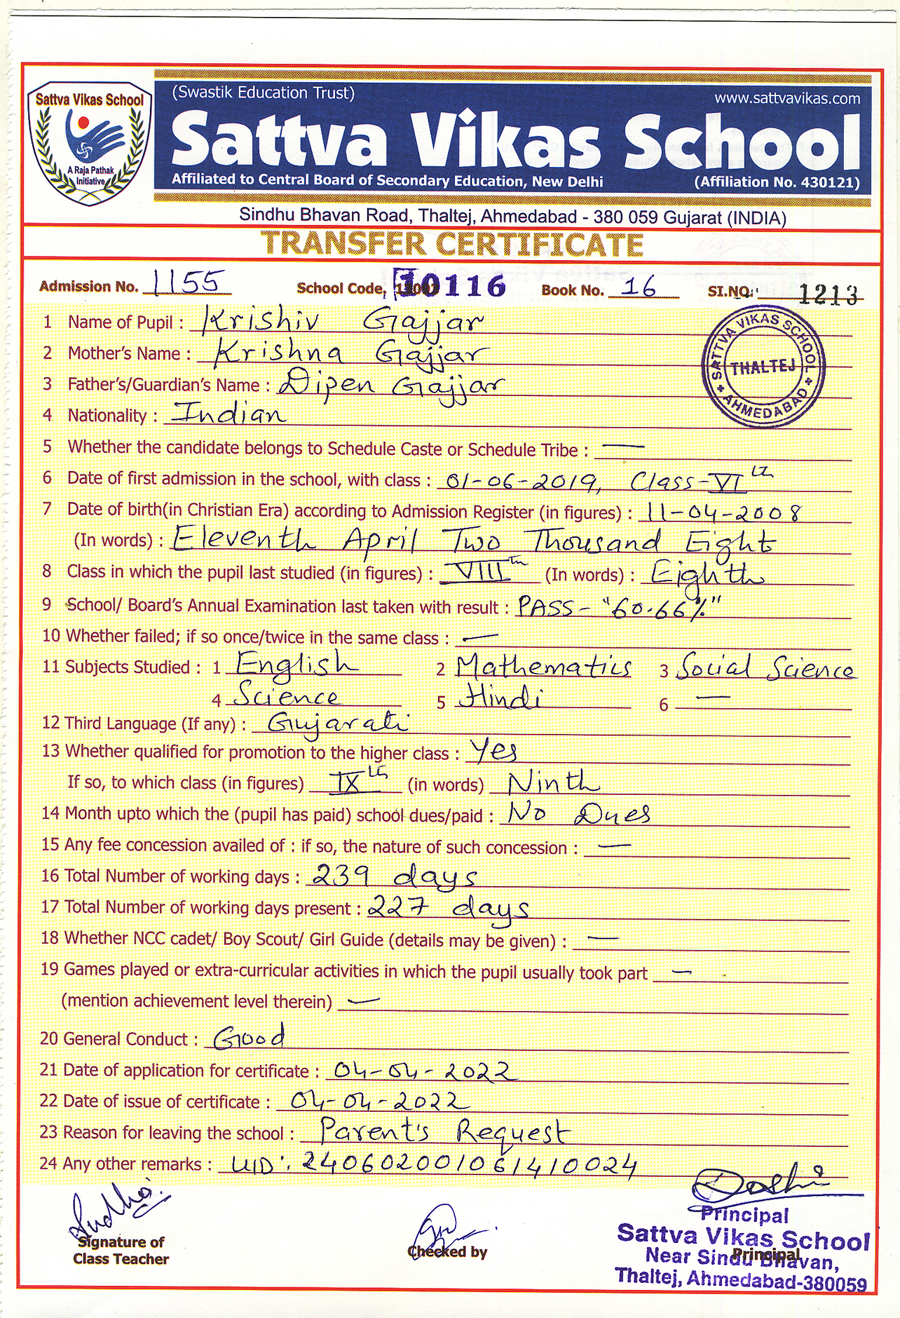 Sattva Vikas School
A Raja Pathak
Initiative
(Swastik Education Trust) www.sattvavikas.com
Sattva Vikas School
Affiliated to Central Board of Secondary Education, New Delhi (Affiliation No. 430121)
Sindhu Bhavan Road, Thaltej, Ahmedabad - 380 059 Gujarat (INDIA)
TRANSFER CERTIFICATE
Admission No. 1155 School Code, 10116 Book No. 16 SI.NO. 1213
SATTVA VIKAS SCHOOL
THALTEJ
AHMEDABAD
1 Name of Pupil : Krishiv Gajjar
2 Mother's Name : Krishna Gajjar
3 Father's/Guardian's Name : Dipen Gajjar
4 Nationality : Indian
5 Whether the candidate belongs to Schedule Caste or Schedule Tribe : —
6 Date of first admission in the school, with class : 01-06-2019, Class-VIth
7 Date of birth(in Christian Era) according to Admission Register (in figures) : 11-04-2008
(In words) : Eleventh April Two Thousand Eight
8 Class in which the pupil last studied (in figures) : VIIIth (In words) : Eighth
9 School/ Board's Annual Examination last taken with result : PASS- "60.66%"
10 Whether failed; if so once/twice in the same class : —
11 Subjects Studied : 1 English 2 Mathematics 3 Social Science
4 Science 5 Hindi 6 —
12 Third Language (If any) : Gujarati
13 Whether qualified for promotion to the higher class : Yes
If so, to which class (in figures) IXth (in words) Ninth
14 Month upto which the (pupil has paid) school dues/paid : No Dues
15 Any fee concession availed of : if so, the nature of such concession : —
16 Total Number of working days : 239 days
17 Total Number of working days present : 227 days
18 Whether NCC cadet/ Boy Scout/ Girl Guide (details may be given) : —
19 Games played or extra-curricular activities in which the pupil usually took part —
(mention achievement level therein) —
20 General Conduct : Good
21 Date of application for certificate : 04-04-2022
22 Date of issue of certificate : 04-04-2022
23 Reason for leaving the school : Parent's Request
24 Any other remarks : UID: 240602001061410024
Signature of
Class Teacher
Checked by
Principal
Principal
Sattva Vikas School
Near Sindu Bhavan,
Thaltej, Ahmedabad-380059